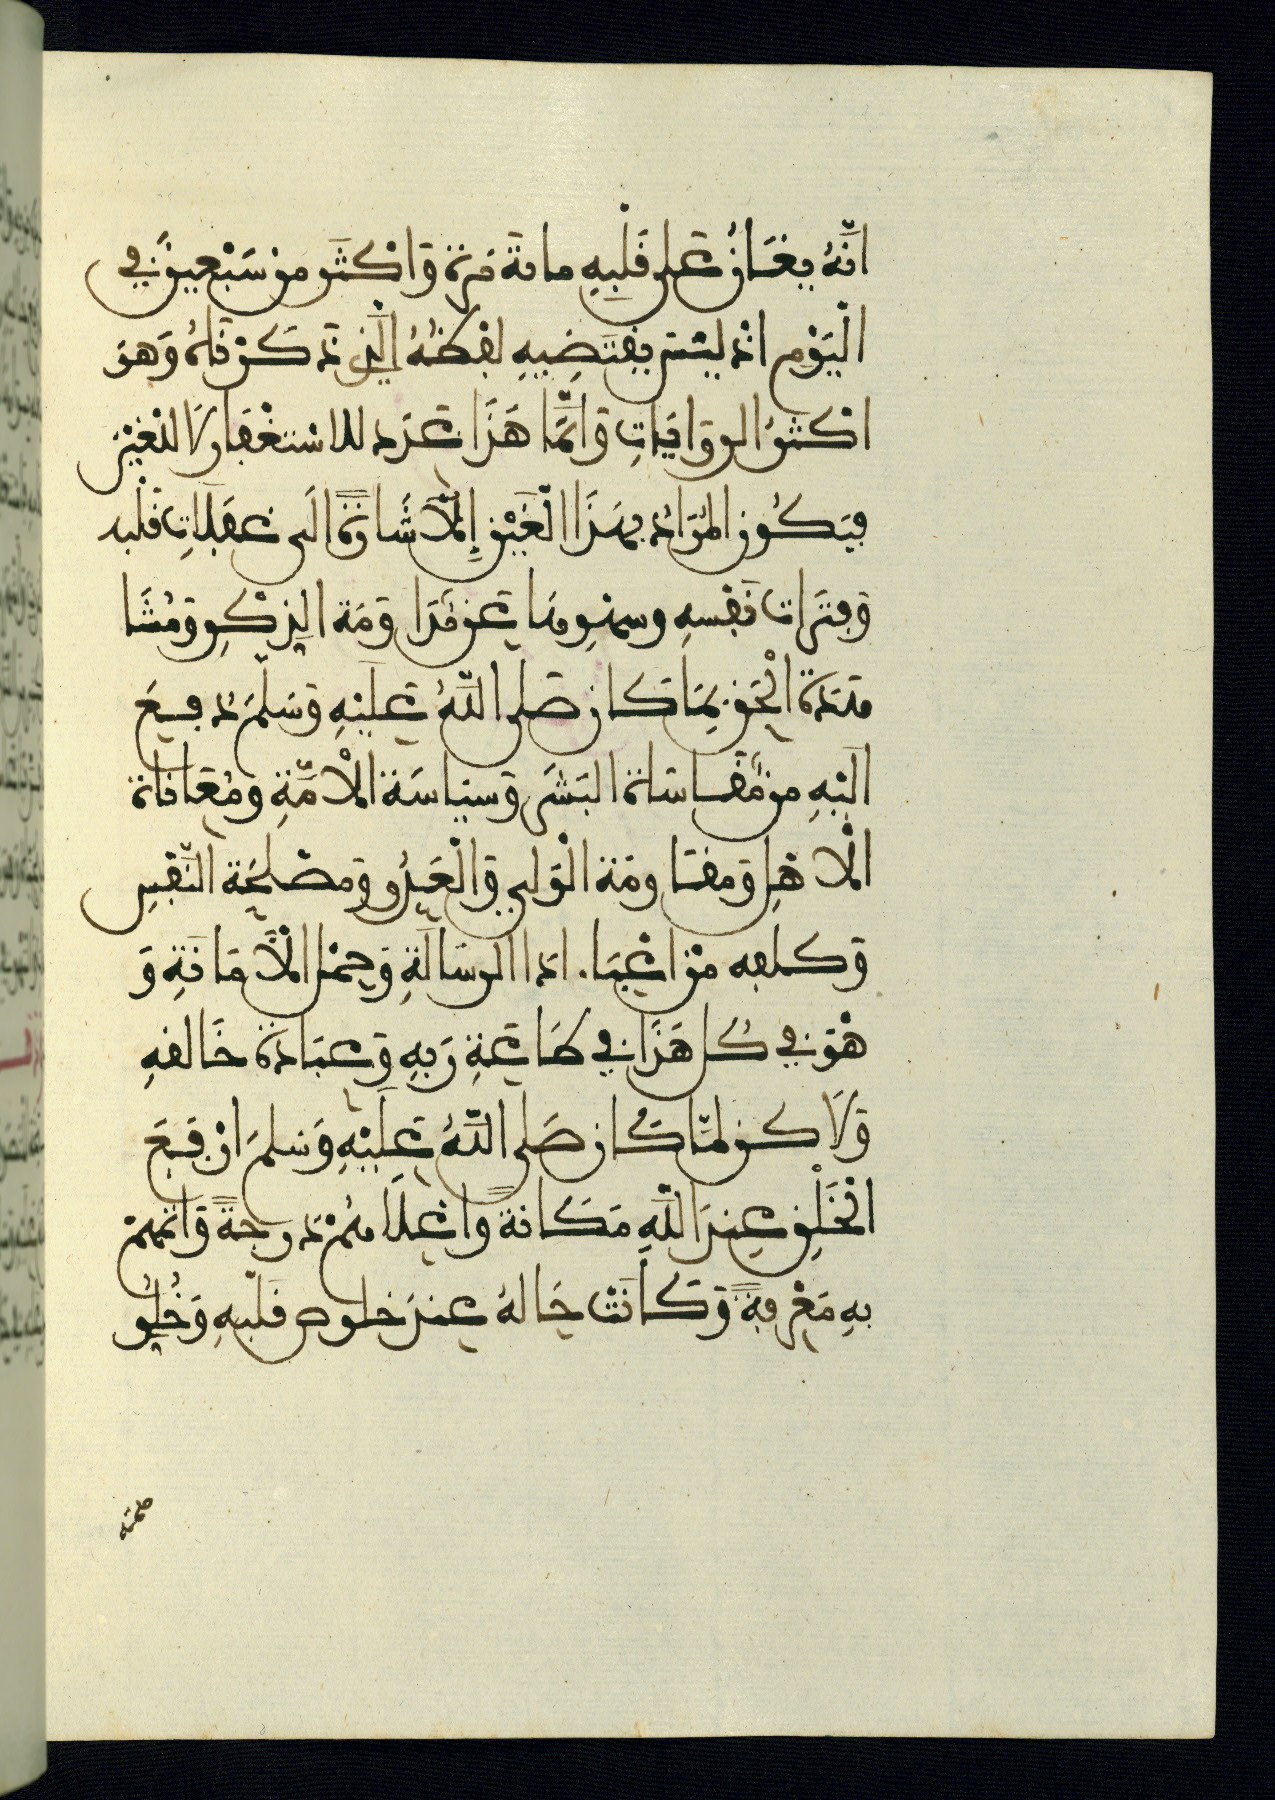 انّهُ يغَانُ عَلى قَلْبِهِ مائةَ مَرة وَاكْثَر من سَبْعين في
الْيَوْم اذ ليْسَ يقتَضِيهِ لفْظُهُ الّذِي ذَكَرْنَاهُ وَهو
اكْثَرُ الروَايَاتِ وَانَّمَا هَذَا عَدَد للاسْتغْفَار لَا للغَيْن
فيَكُون المُرَادُ بهَذَا الْغَيْن إِشَارَة الَى غفَلَاتِ قَلْبه
وَفتَرَات نَفْسِهِ وسهْوِهَا عَن مُدَاوَمَة الذِكْرِ وَمُشَا
هَدَة الْحَق بِمَا كَان صَلى اللَّهُ عَلَيْهِ وَسَلمَ دُفِعَ
الَيْهِ من مُقَاسَاة البَشَر وَسيَاسَة الْامَّةِ وَمُعَانَاة
الْاهْل وَمقَاوَمَة الْوَلي وَالْعَدُو وَمصْلحَة النَّفْسِ
وَكلفه منْ اعْبَاء ادا الرسَالَةِ وَحمْل الْأَمَانَةِ وَ
هْوَ في كُل هَذَا في طَاعَةِ رَبهِ وَعبَادَة خَالقهِ
وَلَاكن لمَّا كَان صَلى اللَّهُ عَلَيْهِ وَسَلمَ ارْفَعَ
الْخَلْقِ عِندَ اللَّهِ مَكَانةً وَاعْلَاهُمْ دَرجَةً وَاتمهمْ
بهِ مَعْرفةً وَكَانَتْ حَالهُ عِندَ خلوص قَلْبهِ وَخُلُو
همته